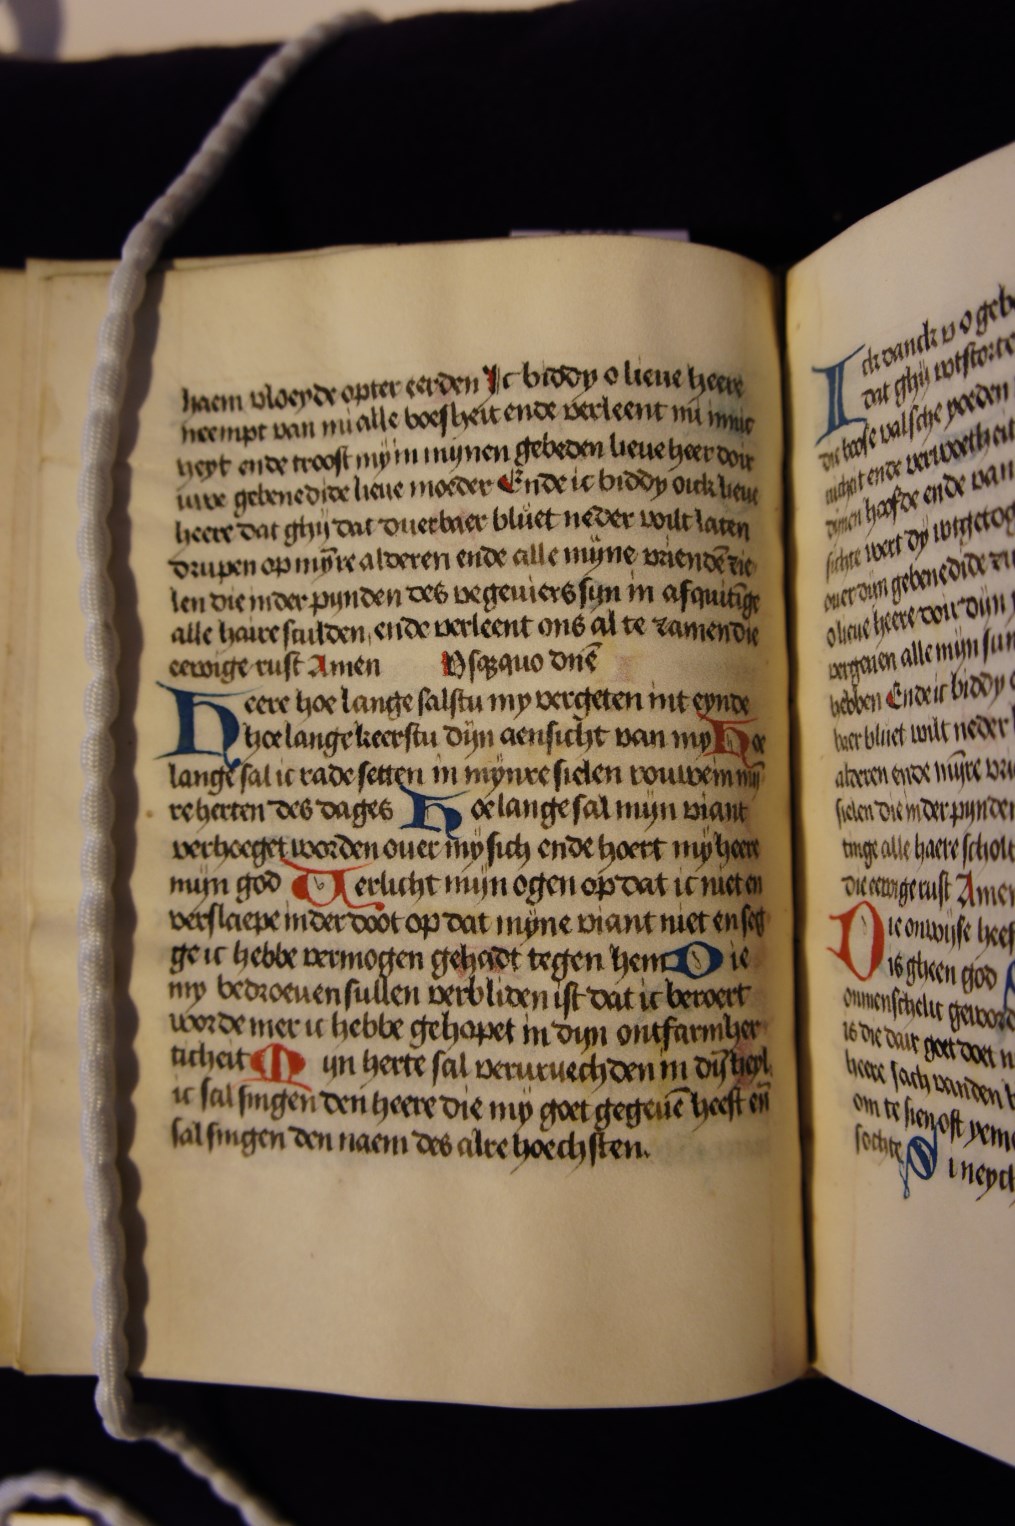 haem vloeyde opter eerden Ic biddy o lieue heere
neempt van mi alle boesheit ende verleent mi innic
heyt ende troost my in mijnen gebeden lieue heer doir
uwe gebenedide lieue moeder Ende ic biddy oick lieue
heere dat ghij dat duerbaer bluet neder wilt laten
drupen op mÿre alderen ende alle mijne vriendē zie
len die inder pynden des vegeuiers sijn in afquitīge
alle haire sculden, ende verleent ons al te zamen die
eewige rust Amen Vsqȝquo dnē
Heere hoe lange salstu my vergeten int eynde
hoe lange keerstu dijn aensicht van my Hoe
lange sal ic rade setten in mynre sielen rouwe in mij
re herten des dages Hoe lange sal mijn viant
verhoeget worden ouer my sich ende hoert my heere
mijn god Verlicht mijn ogen op dat ic niet en
verslaepe inder doot op dat mijne viant niet en seg
ge ic hebbe vermogen gehadt tegen hem Die
my bedroeuen sullen verbliden ist dat ic beroert
worde mer ic hebbe gehapet in dijn ontfarmher
ticheit Mijn herte sal vervruechden in dij heyl
ic sal singen den heere die my goet gegeuē heeft eñ
sal singen den naem des alre hoechsten.
Ick danck v o geb
dat ghij wtstorte
die boese valsche yoeden
nicheit ende verwoetheit
dijnen hoofde ende van
sichte wert dy wtgetog
ouer dijn gebenedide
o lieue heere doir dijn
vergeuen alle mijn sun
hebben Ende ic biddy
baer bluet wilt neder
alderen ende mÿre vri
sielen die inder pynden
tinge alle haere scholt
die eewige rust Amen
Die onwijse heef
is gheen god
onmenschelic geword
is die dair goet doet n
heere sach vanden
om te sien oft yeme
sochte
i neych